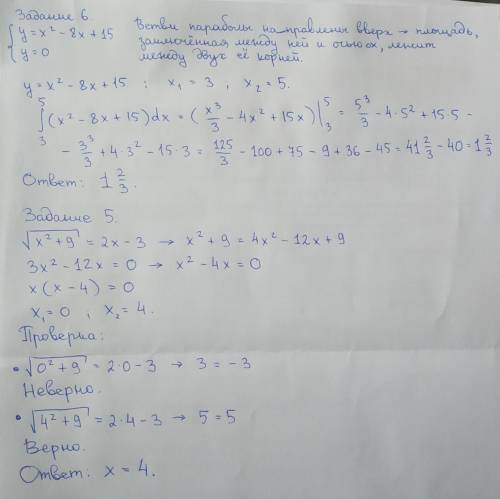 Задание 6.
{ y = x² - 8x + 15
y = 0
Ветви параболы направлены вверх → площадь,
заключённая между ней и осью ox, лежит
между двух её корней.
y = x² - 8x + 15 ; x₁ = 3 , x₂ = 5.
∫₃⁵ (x² - 8x + 15) dx = (x³/3 - 4x² + 15x) |₃⁵ = 5³/3 - 4·5² + 15·5 -
- 3³/3 + 4·3² - 15·3 = 125/3 - 100 + 75 - 9 + 36 - 45 = 41 2/3 - 40 = 1 2/3
Ответ: 1 2/3.
Задание 5.
√(x² + 9) = 2x - 3 → x² + 9 = 4x² - 12x + 9
3x² - 12x = 0 → x² - 4x = 0
x (x - 4) = 0
x₁ = 0 , x₂ = 4.
Проверка:
• √(0² + 9) = 2·0 - 3 → 3 = -3
Неверно.
• √(4² + 9) = 2·4 - 3 → 5 = 5
Верно.
Ответ: x = 4.